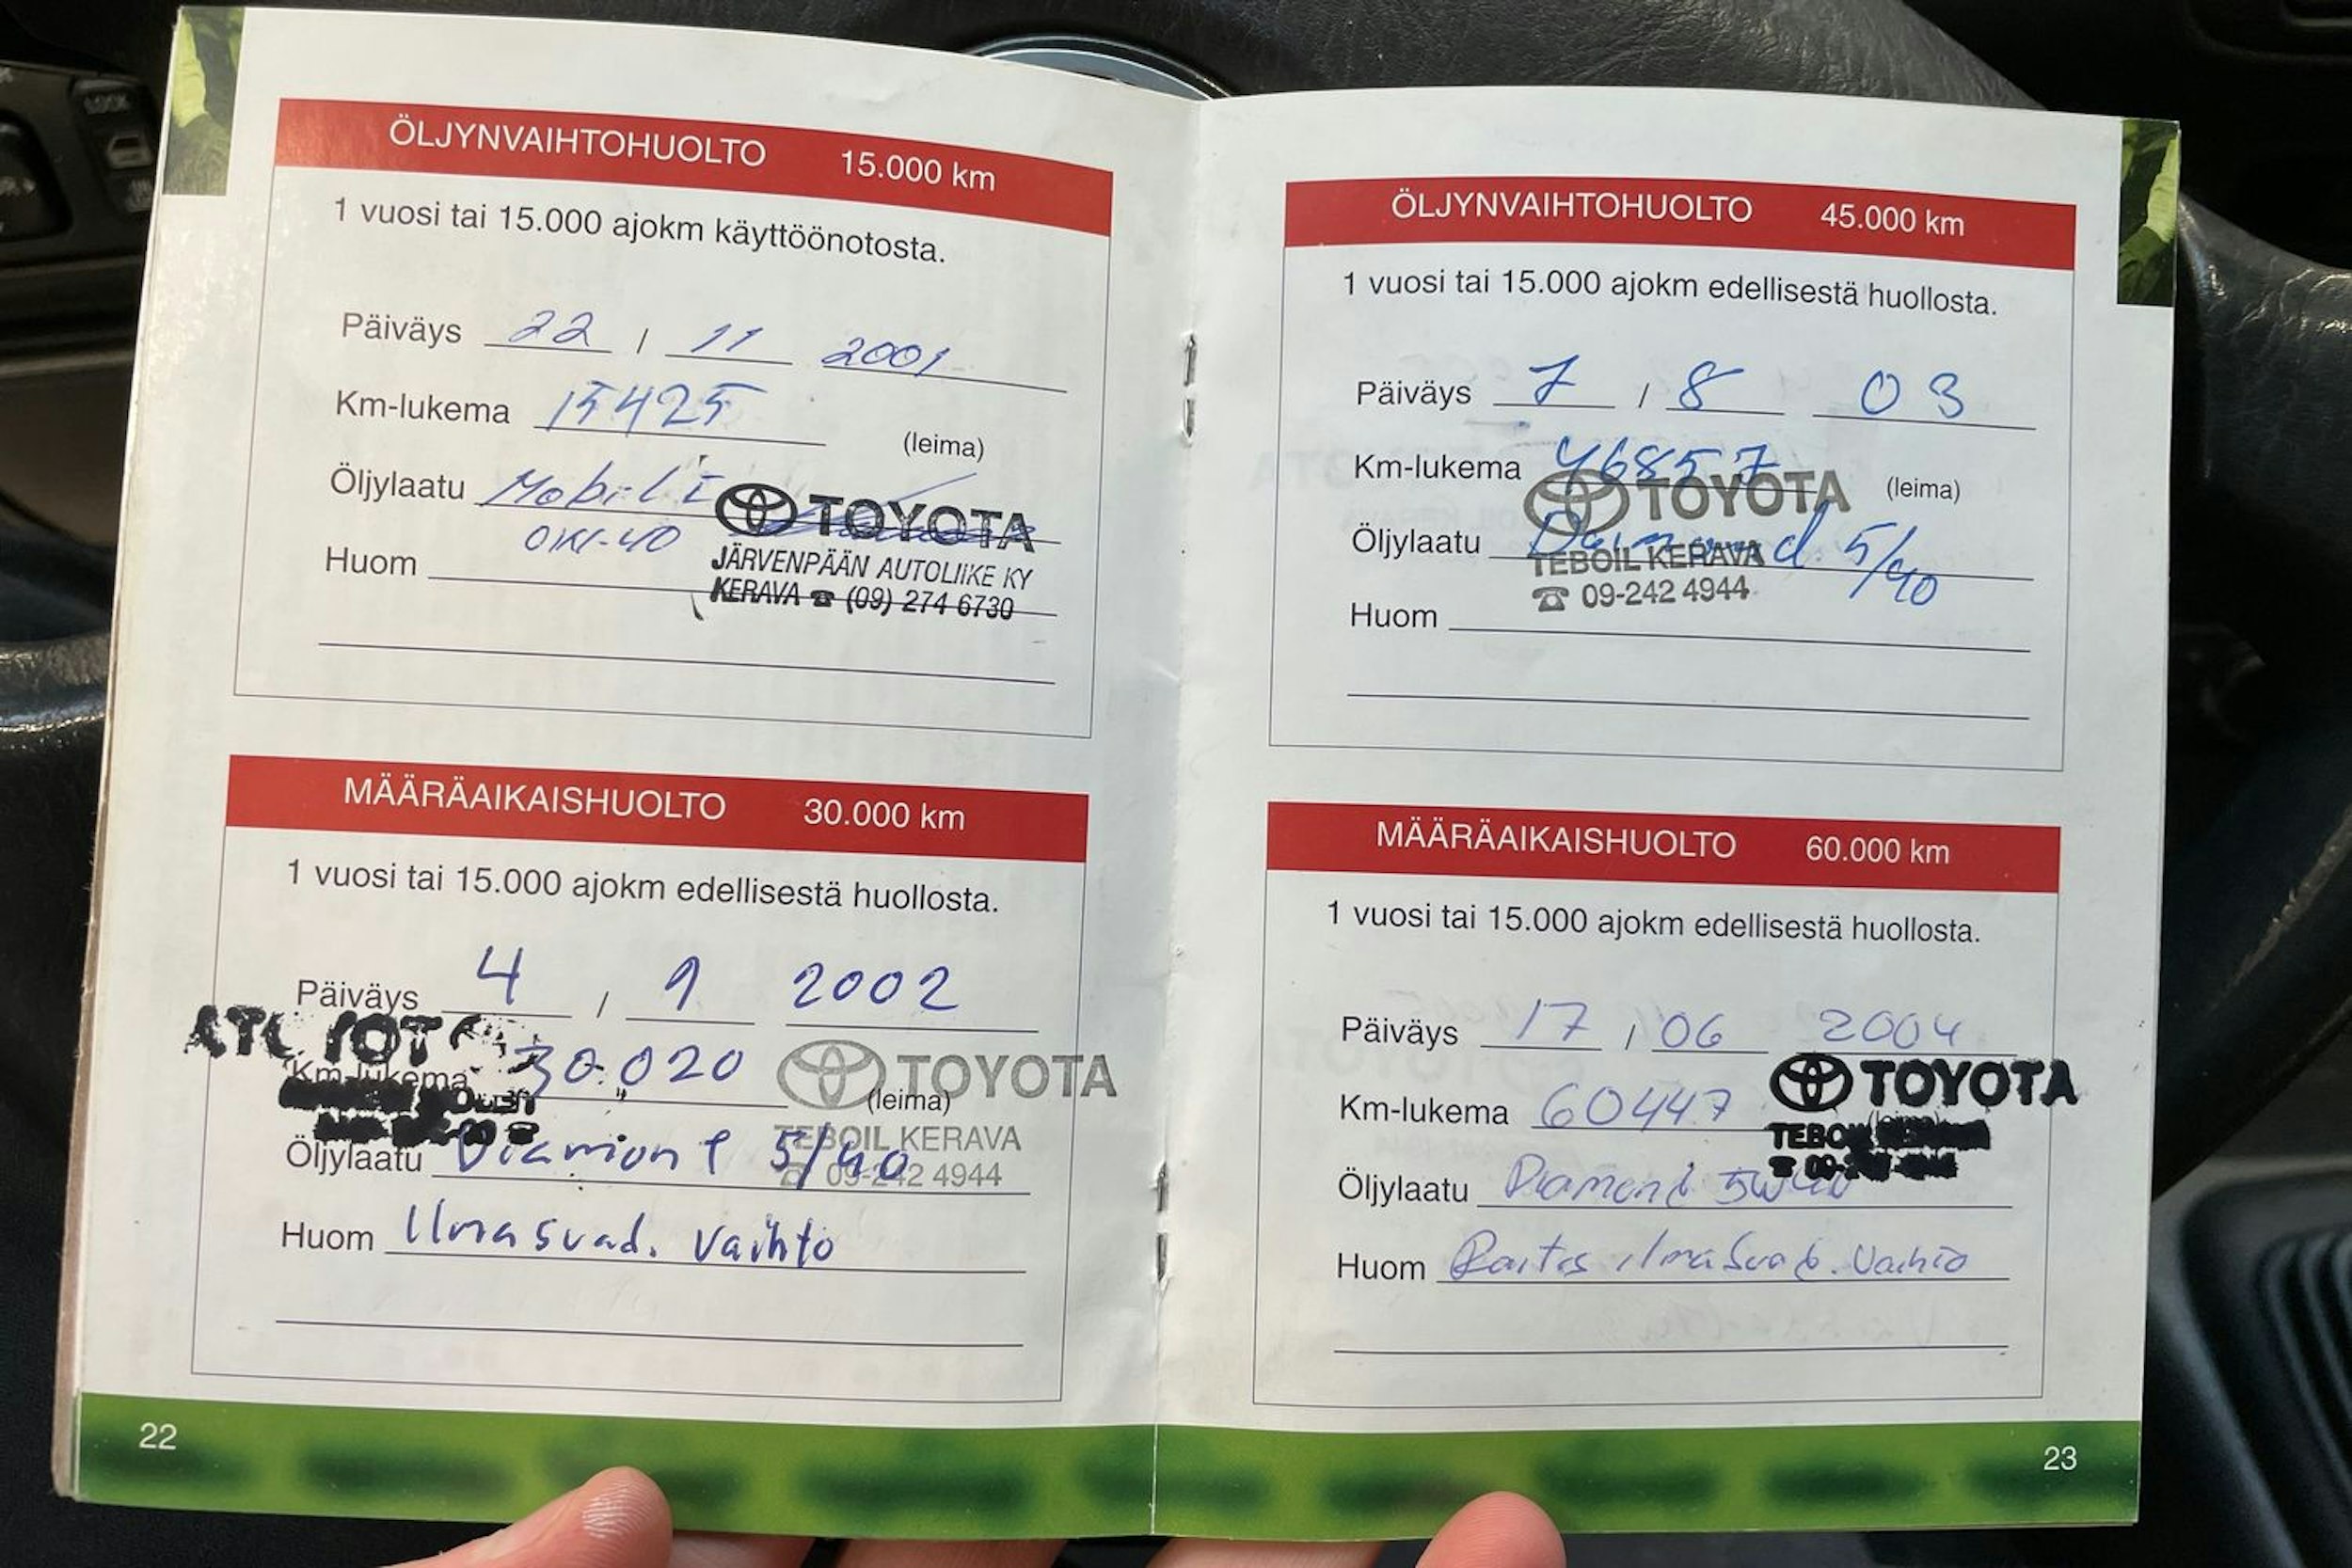 ÖLJYNVAIHTOHUOLTO 15.000 km
1 vuosi tai 15.000 ajokm käyttöönotosta.
Päiväys 22 / 11 2001
Km-lukema 15425
(leima)
Öljylaatu Mobil 1
0W-40
TOYOTA
JÄRVENPÄÄN AUTOLIIKE KY
KERAVA ☎ (09) 274 6730
Huom
MÄÄRÄAIKAISHUOLTO 30.000 km
1 vuosi tai 15.000 ajokm edellisestä huollosta.
Päiväys 4 / 9 2002
Km-lukema 30.020
TOYOTA
(leima)
TEBOIL KERAVA
☎ 09-242 4944
Öljylaatu 5/40
Huom Ilmasuod. vaihto
22
ÖLJYNVAIHTOHUOLTO 45.000 km
1 vuosi tai 15.000 ajokm edellisestä huollosta.
Päiväys 7 / 8 03
Km-lukema 46857
(leima)
TOYOTA
Öljylaatu 5/40
TEBOIL KERAVA
☎ 09-242 4944
Huom
MÄÄRÄAIKAISHUOLTO 60.000 km
1 vuosi tai 15.000 ajokm edellisestä huollosta.
Päiväys 17 / 06 2004
Km-lukema 60447
TOYOTA
(leima)
Öljylaatu Diamond 5W40
Huom Raitis ilmasuod. vaihto
23
LOCK